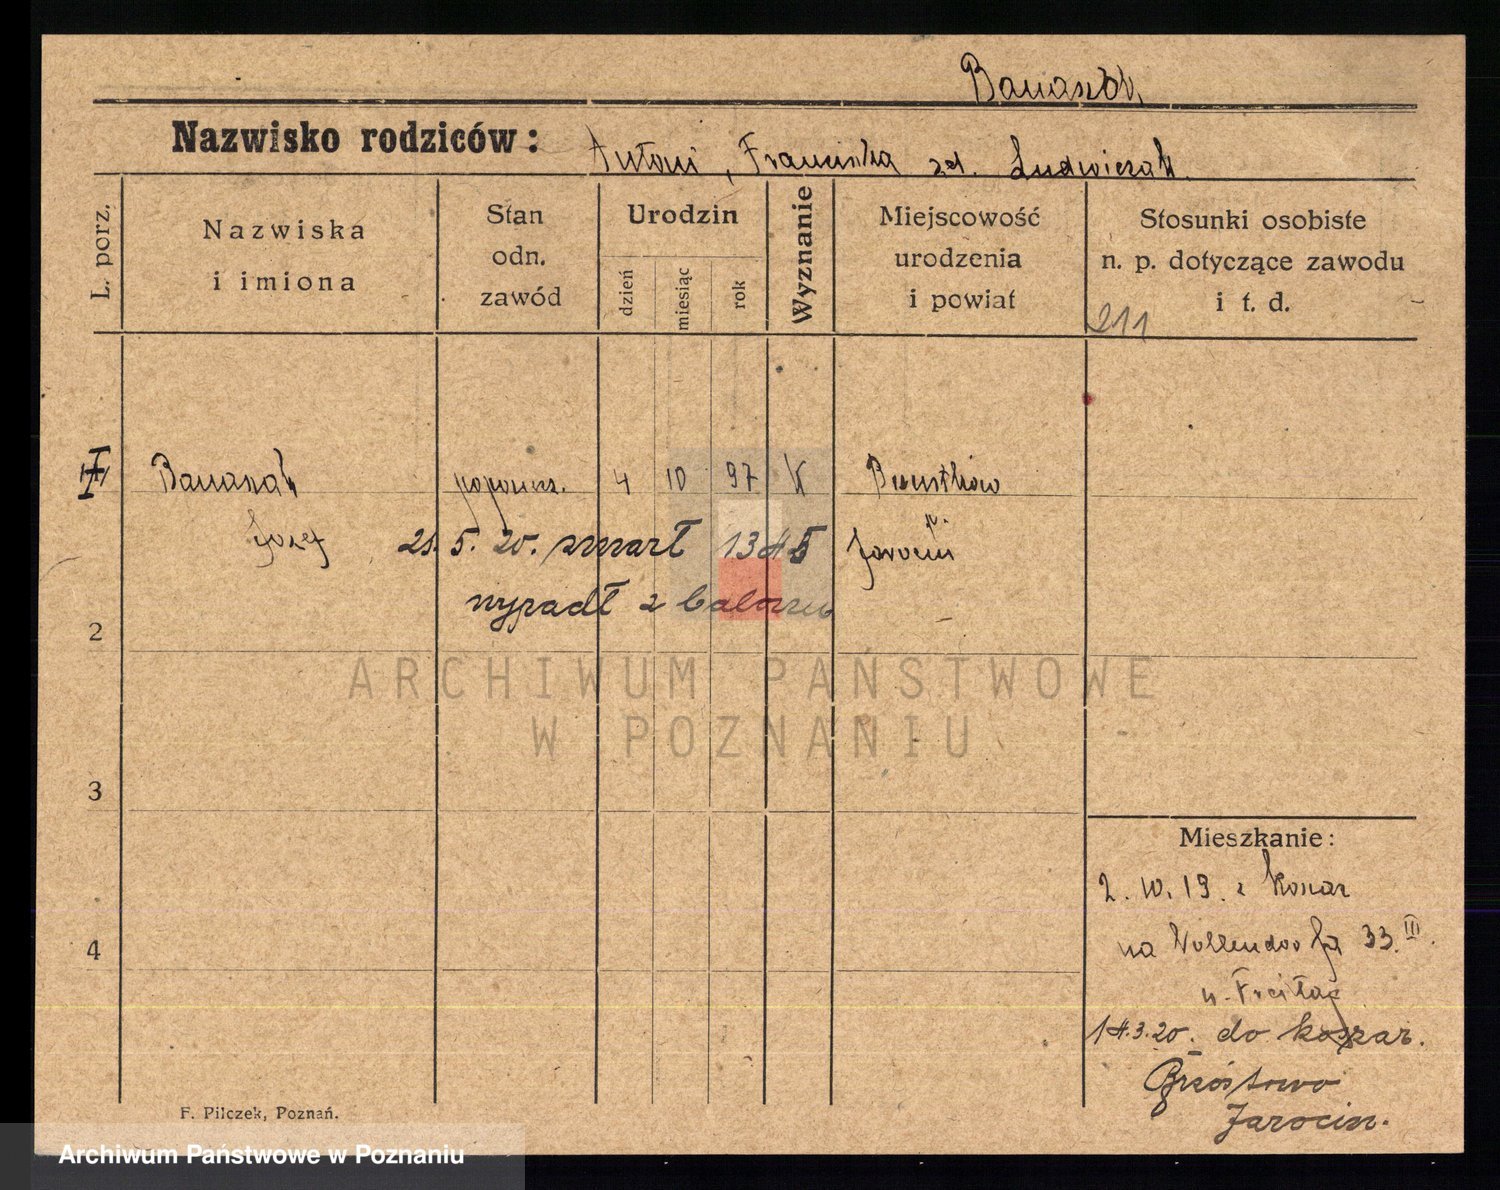 Banaszak
Nazwisko rodziców: Antoni, Franciszka zd. Ludwiczak
L. porz.
Nazwiska
i imiona
Stan
odn.
zawód
Urodzin
dzień
miesiąc
rok
Wyznanie
Miejscowość
urodzenia
i powiat
Stosunki osobiste
n. p. dotyczące zawodu
i t. d.
211
Banaszak 4 10 97 K
Józef
p. Jarocin
5. 20. zmarł 1345
wypadł z balonu
2
3
4
Mieszkanie:
2. 10. 19. z Koszar
na 33. III.
u. Freitag
14.3.20. do koszar.
Brzóstowo
Jarocin.
F. Pilczek, Poznań.
ARCHIWUM PAŃSTWOWE
W POZNANIU
Archiwum Państwowe w Poznaniu